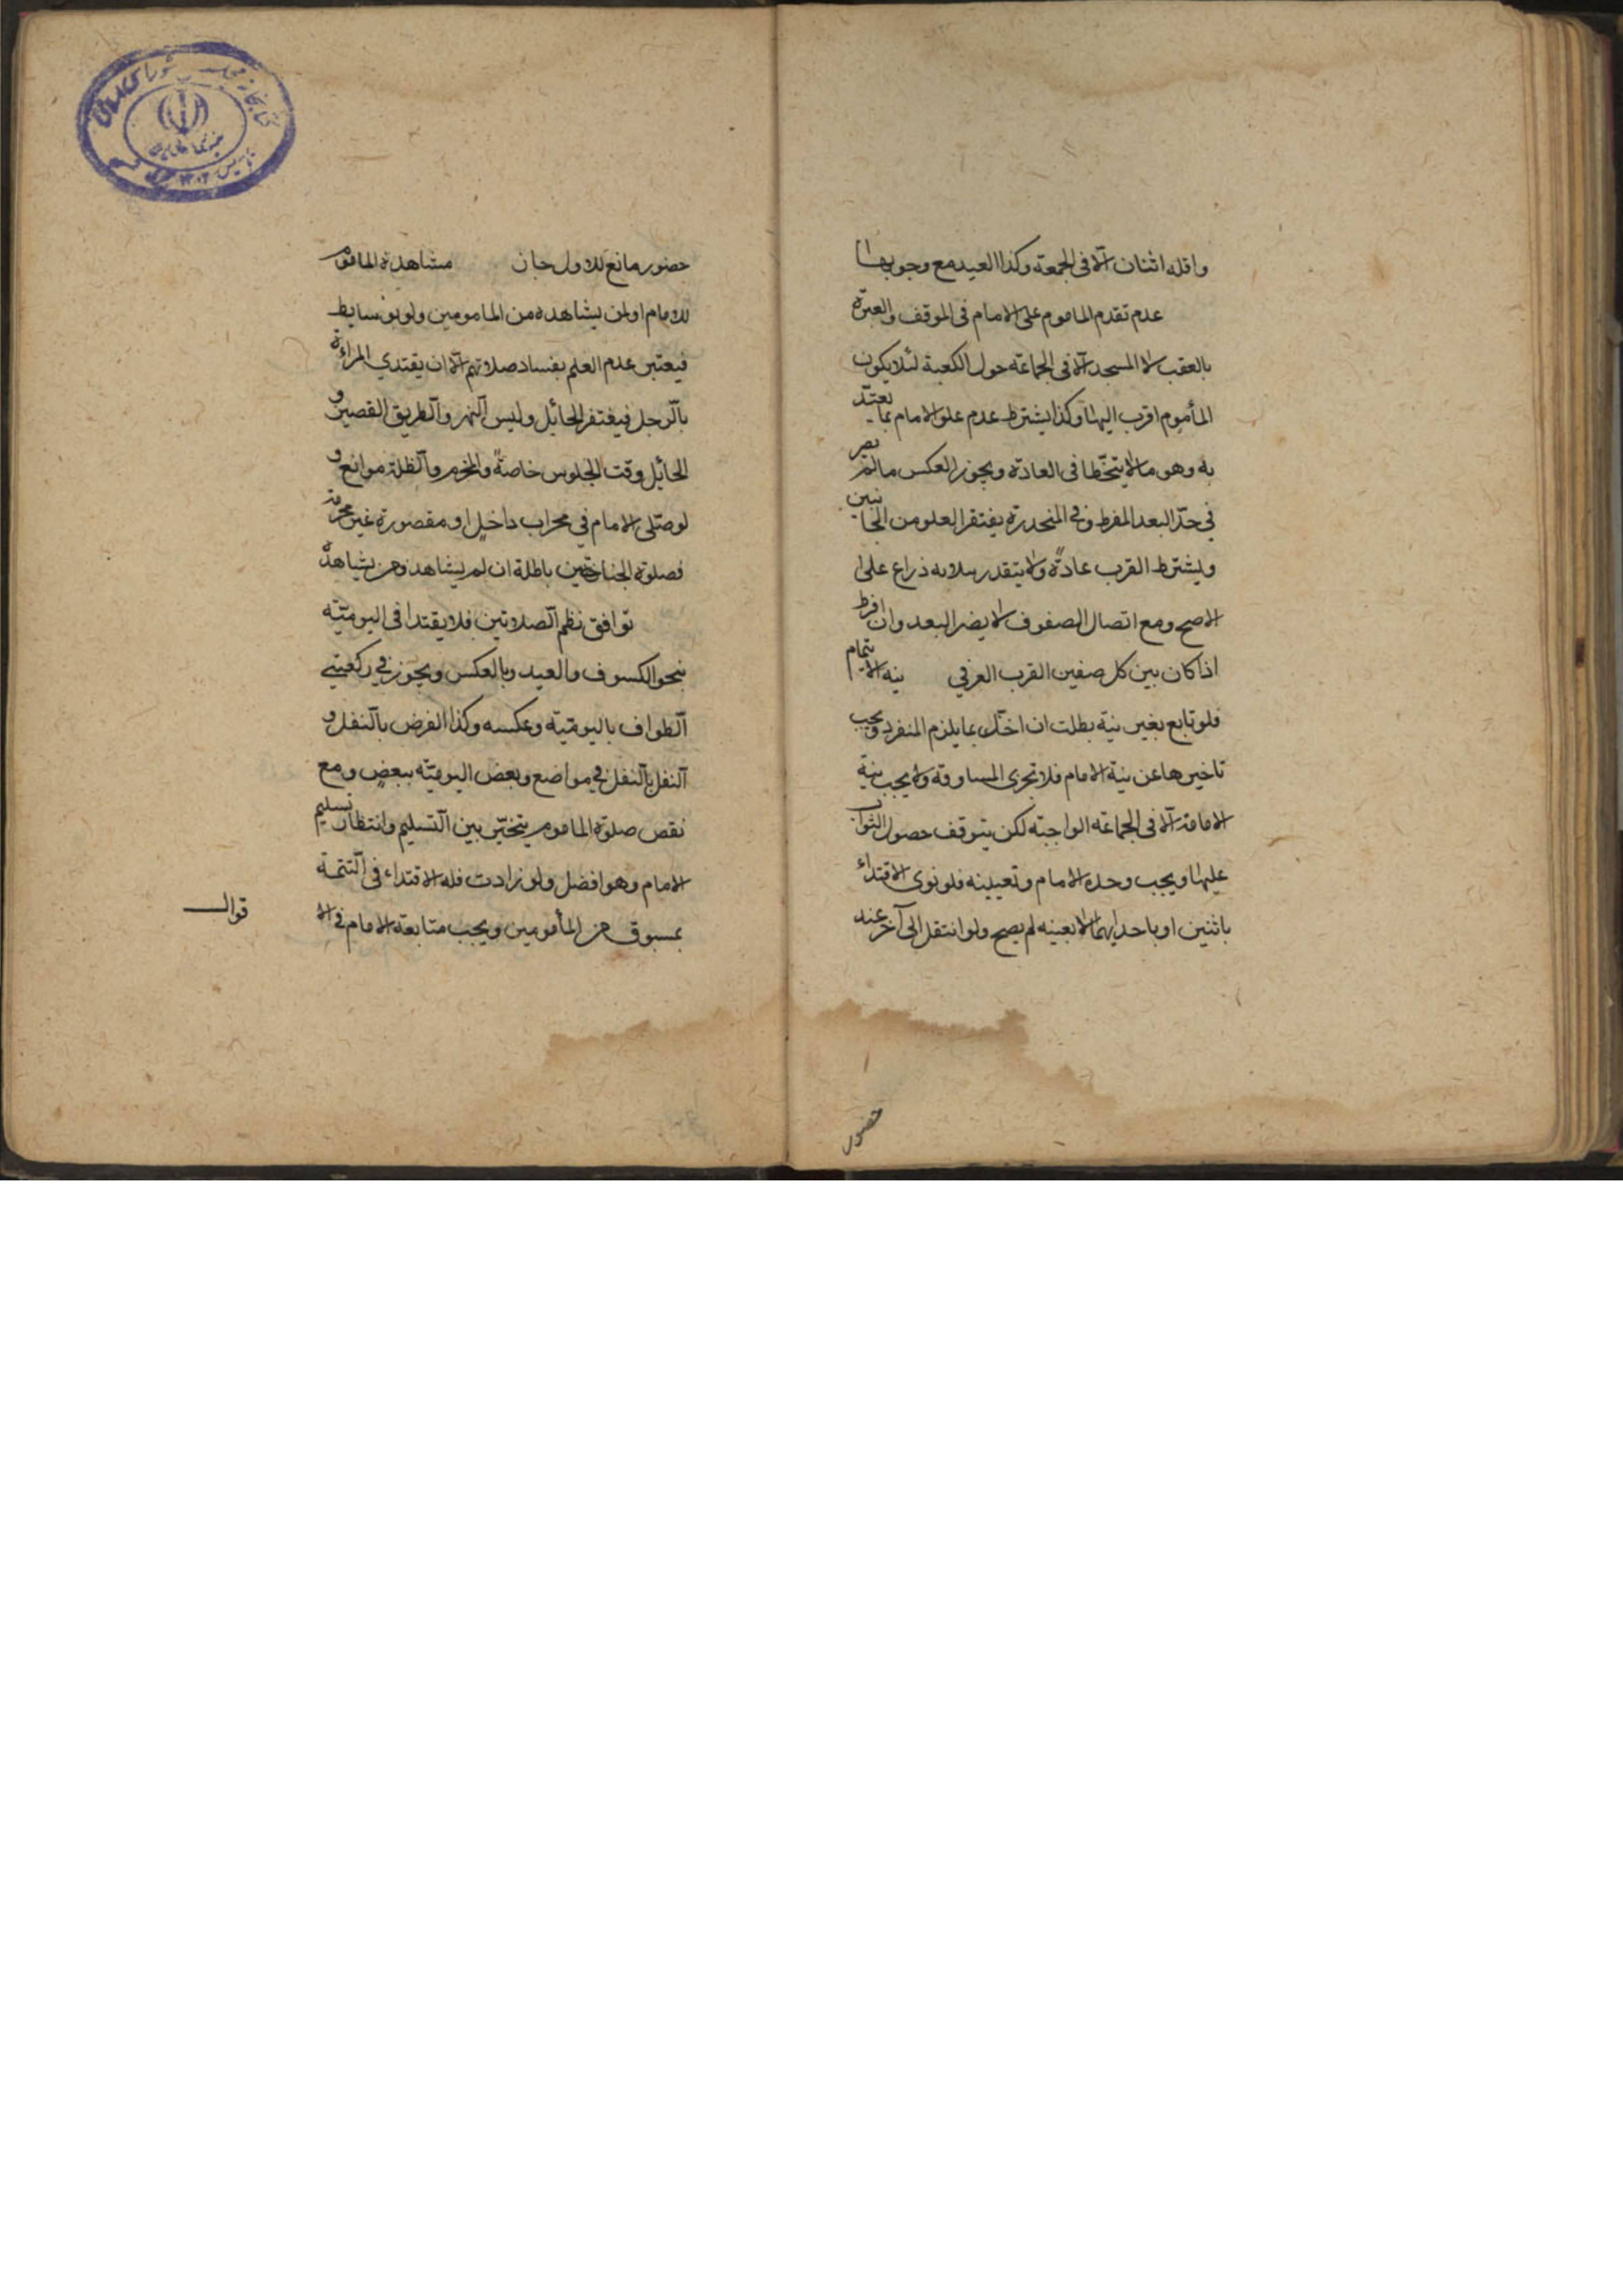 واقله اثنان الا فى الجمعة وكذا العيد مع وجوبها
عدم تقدم الماموم على الامام فى الموقف والعبرة
بالعقب لا المسجد الا فى الجماعة حول الكعبة لئلا يكون
المأموم اقرب اليها وكذا يشترط عدم علو الامام بما يعتد
به وهو ما لا يتخطا فى العادة ويجوز العكس ما لم يصر
في حدّ البعد المفرط وفي المنحدرة يغتفر العلو من الجانبين
ويشترط القرب عادةً ولا يتقدر بثلاثمائة ذراع على
الاصح ومع اتصال الصفوف لا يضر البعد وان افرط
اذا كان بين كل صفين القرب العرفي نية الايتمام
فلو تابع بغير نية بطلت ان اخلّ بما يلزم المنفرد ويجب
تاخيرها عن نية الامام فلا تجزى المساوقة ولا يجب نية
الامامة الا فى الجماعة الواجبة لكن يتوقف حصول الثواب
عليها ويجب وحدة الامام وتعيينه فلو نوى الاقتداء
باثنين او باحدايهما لا بعينه لم يصح ولو انتقل الى آخر عند
حضور
حضور مانع للاول جاز مشاهدة الماموم
للامام او لمن يشاهده من المامومين ولو بوسايط
فيعتبر عدم العلم بفساد صلاتهم الا ان يقتدي المراءة
بالرجل فيغتفر الحائل وليس النهر والطريق القصير و
الحائل وقت الجلوس خاصةً والمخرم والظلمة موانع و
لو صلى الامام في محراب داخل او مقصورة غير مخرمة
فصلوة الجناحين باطلة ان لم يشاهد من يشاهده
توافق نظم الصلاتين فلا يقتدا فى اليومية
بنحو الكسوف والعيد وبالعكس ويجوز في ركعتي
الطواف باليومية وعكسه وكذا الفرض بالنفل و
النفل بالنفل في مواضع وبعض اليومية ببعض ومع
نقص صلوة الماموم يتخيّر بين التسليم وانتظار تسليم
الامام وهو افضل ولو زادت فله الاقتداء فى التتمة
بمسبوق من المأمومين ويجب متابعة الامام في الا
قوال